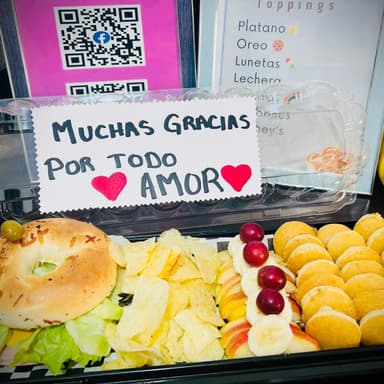 Toppings
Platano
Oreo
Lunetas
Lechera
MUCHAS GRACIAS
POR TODO
AMOR